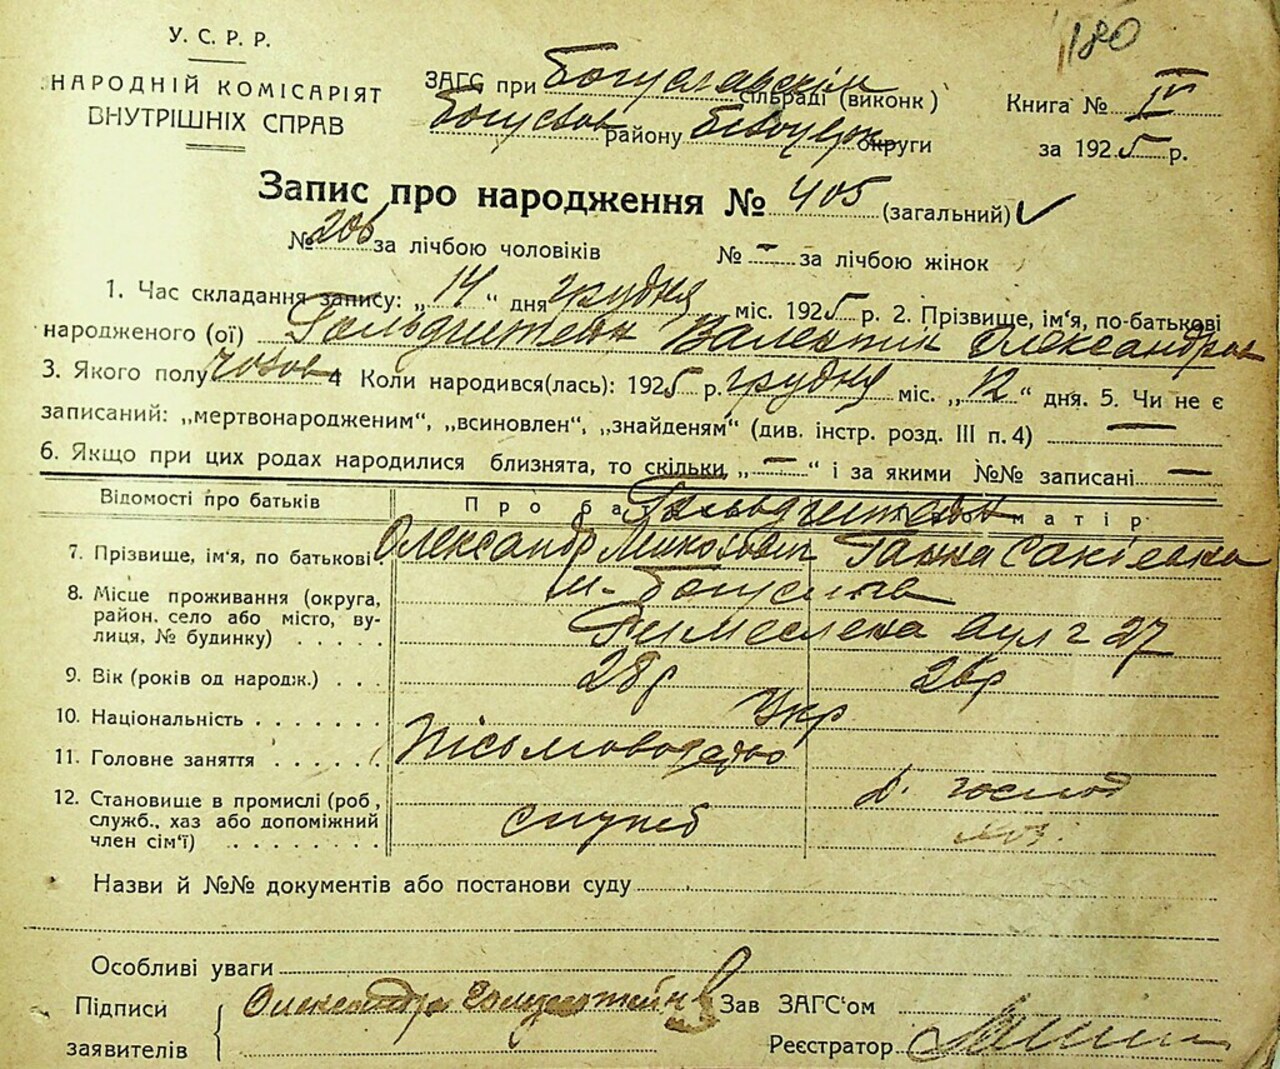 180
У. С. Р. Р.
НАРОДНІЙ КОМІСАРІЯТ
ВНУТРІШНІХ СПРАВ
ЗАГС при Богуславскім сільраді (виконк)
Богуслав району Білоцерк округи
Книга № IV
за 1925 р.
Запис про народження № 405 (загальний) ✓
№ 206 за лічбою чоловіків № – за лічбою жінок
1. Час складання запису: „14" дня грудня міс. 1925 р. 2. Прізвище, ім'я, по-батькові
народженого (ої) Гольдштейн Валентін Олександров
3. Якого полу чолов 4 Коли народився(лась): 1925 р. грудня міс. „12" дня. 5. Чи не є
записаний: „мертвонародженим", „всиновлен", „знайденям" (див. інстр. розд. III п. 4) —
6. Якщо при цих родах народилися близнята, то скільки „—" і за якими №№ записані —
Відомості про батьків Про ба матір
Гольдштейн
7. Прізвище, ім'я, по батькові. Олександр Ганна
8. Місце проживання (округа,
район, село або місто, ву-
лиця, № будинку) . . . . .
м. Богуслав
вул 27
9. Вік (років од народж.) . . . 28р 26р
10. Національність . . . . . . . Укр
11. Головне заняття . . . . . . Пісьмоводство
12. Становище в промислі (роб,
служб., хаз або допоміжний
член сім'ї) . . . . . . . .
служб
д. господ
Назви й №№ документів або постанови суду
Особливі уваги
Підписи
заявителів
Зав ЗАГС'ом
Реєстратор